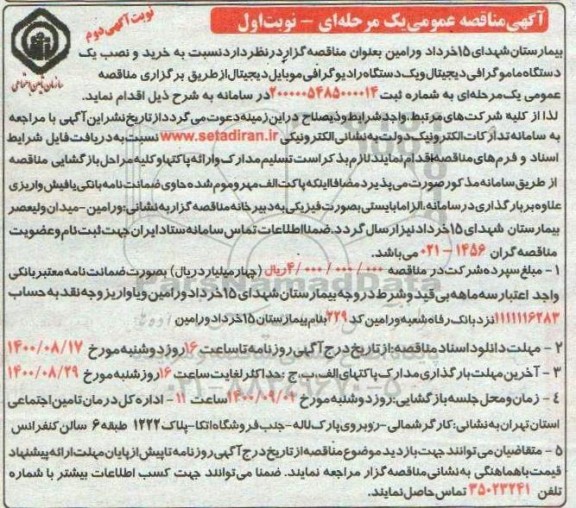 آگهی مناقصه عمومی یک مرحله‌ای - نوبت اول
نوبت آگهی دوم
سازمان تأمین اجتماعی
بیمارستان شهدای ۱۵ خرداد ورامین بعنوان مناقصه گزار در نظر دارد نسبت به خرید و نصب یک
دستگاه ماموگرافی دیجیتال و یک دستگاه رادیوگرافی موبایل دیجیتال از طریق برگزاری مناقصه
عمومی یک مرحله‌ای به شماره ثبت ۲۰۰۰۰۰۵۴۸۵۰۰۰۰۱۴ در سامانه به شرح ذیل اقدام نماید.
لذا از کلیه شرکت‌های مرتبط، واجد شرایط و ذیصلاح در این زمینه دعوت می‌گردد از تاریخ نشر این آگهی با مراجعه
به سامانه تدارکات الکترونیک دولت به نشانی الکترونیکی www.setadiran.ir نسبت به دریافت فایل شرایط
اسناد و فرم‌های مناقصه اقدام نمایند. لازم بذکر است تسلیم مدارک و ارائه پاکتها و کلیه مراحل بازگشایی مناقصه
از طریق سامانه مذکور صورت می‌پذیرد مضافا اینکه پاکت الف مهر و موم شده حاوی ضمانت نامه بانکی یا فیش واریزی
علاوه بر بارگذاری در سامانه، الزاما بایستی بصورت فیزیکی به دبیرخانه مناقصه گزار به نشانی: ورامین- میدان ولیعصر
بیمارستان شهدای ۱۵ خرداد نیز ارسال گردد. ضمنا اطلاعات تماس سامانه ستاد ایران جهت ثبت نام و عضویت
مناقصه گران ۱۴۵۶ - ۰۲۱ می‌باشد.
۱ - مبلغ سپرده شرکت در مناقصه ۴/۰۰۰/۰۰۰/۰۰۰ ریال (چهار میلیارد ریال) بصورت ضمانت نامه معتبر بانکی
واجد اعتبار سه ماهه بی قید و شرط در وجه بیمارستان شهدای ۱۵ خرداد ورامین و یا واریز وجه نقد به حساب
۱۱۱۱۱۱۶۲۸۳ نزد بانک رفاه شعبه ورامین کد ۲۲۹ بنام بیمارستان ۱۵ خرداد ورامین
۲ - مهلت دانلود اسناد مناقصه: از تاریخ درج آگهی روزنامه تا ساعت ۱۶ روز دوشنبه مورخ ۱۴۰۰/۰۸/۱۷
۳ - آخرین مهلت بارگذاری مدارک پاکتهای الف، ب، ج: حداکثر لغایت ساعت ۱۶ روز شنبه مورخ ۱۴۰۰/۰۸/۲۹
۴ - زمان و محل جلسه بازگشایی: روز دوشنبه مورخ ۱۴۰۰/۰۹/۰۲ ساعت ۱۱ - اداره کل درمان تامین اجتماعی
استان تهران به نشانی: کارگر شمالی- روبروی پارک لاله- جنب فروشگاه اتکا- پلاک ۱۲۲۲ طبقه ۶ سالن کنفرانس
۵ - متقاضیان می‌توانند جهت بازدید موضوع مناقصه از تاریخ درج آگهی روزنامه تا پیش از پایان مهلت ارائه پیشنهاد
قیمت با هماهنگی به نشانی مناقصه گزار مراجعه نمایند. ضمنا می‌توانند جهت کسب اطلاعات بیشتر با شماره
تلفن ۳۵۰۲۳۲۴۱ تماس حاصل نمایند.
ParsNamadData
۰۲۱-۸۸۳۴۹۶۷۰-۵